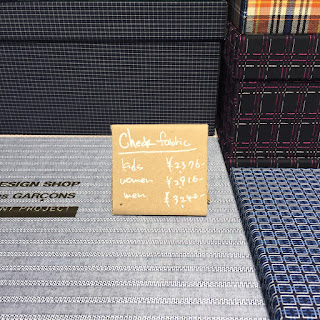 Check fabric
kids ¥2376-
women ¥2916-
men ¥3240-
DESIGN SHOP
GARÇONS
PROJECT